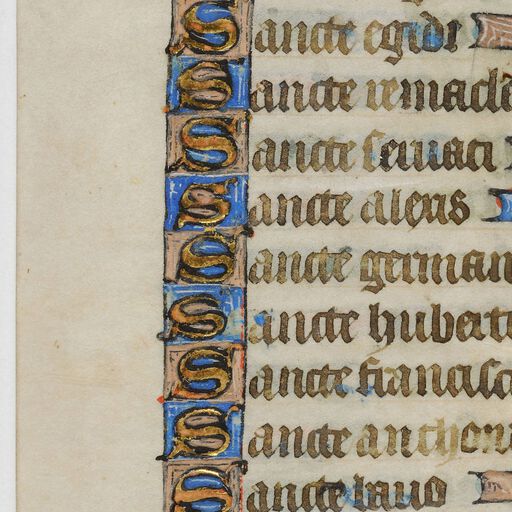 Sancte egidi
Sancte remacle
Sancte seruaci
Sancte alexis
Sancte german
Sancte hubert
Sancte francisc
Sancte anthoni
Sancte bauo